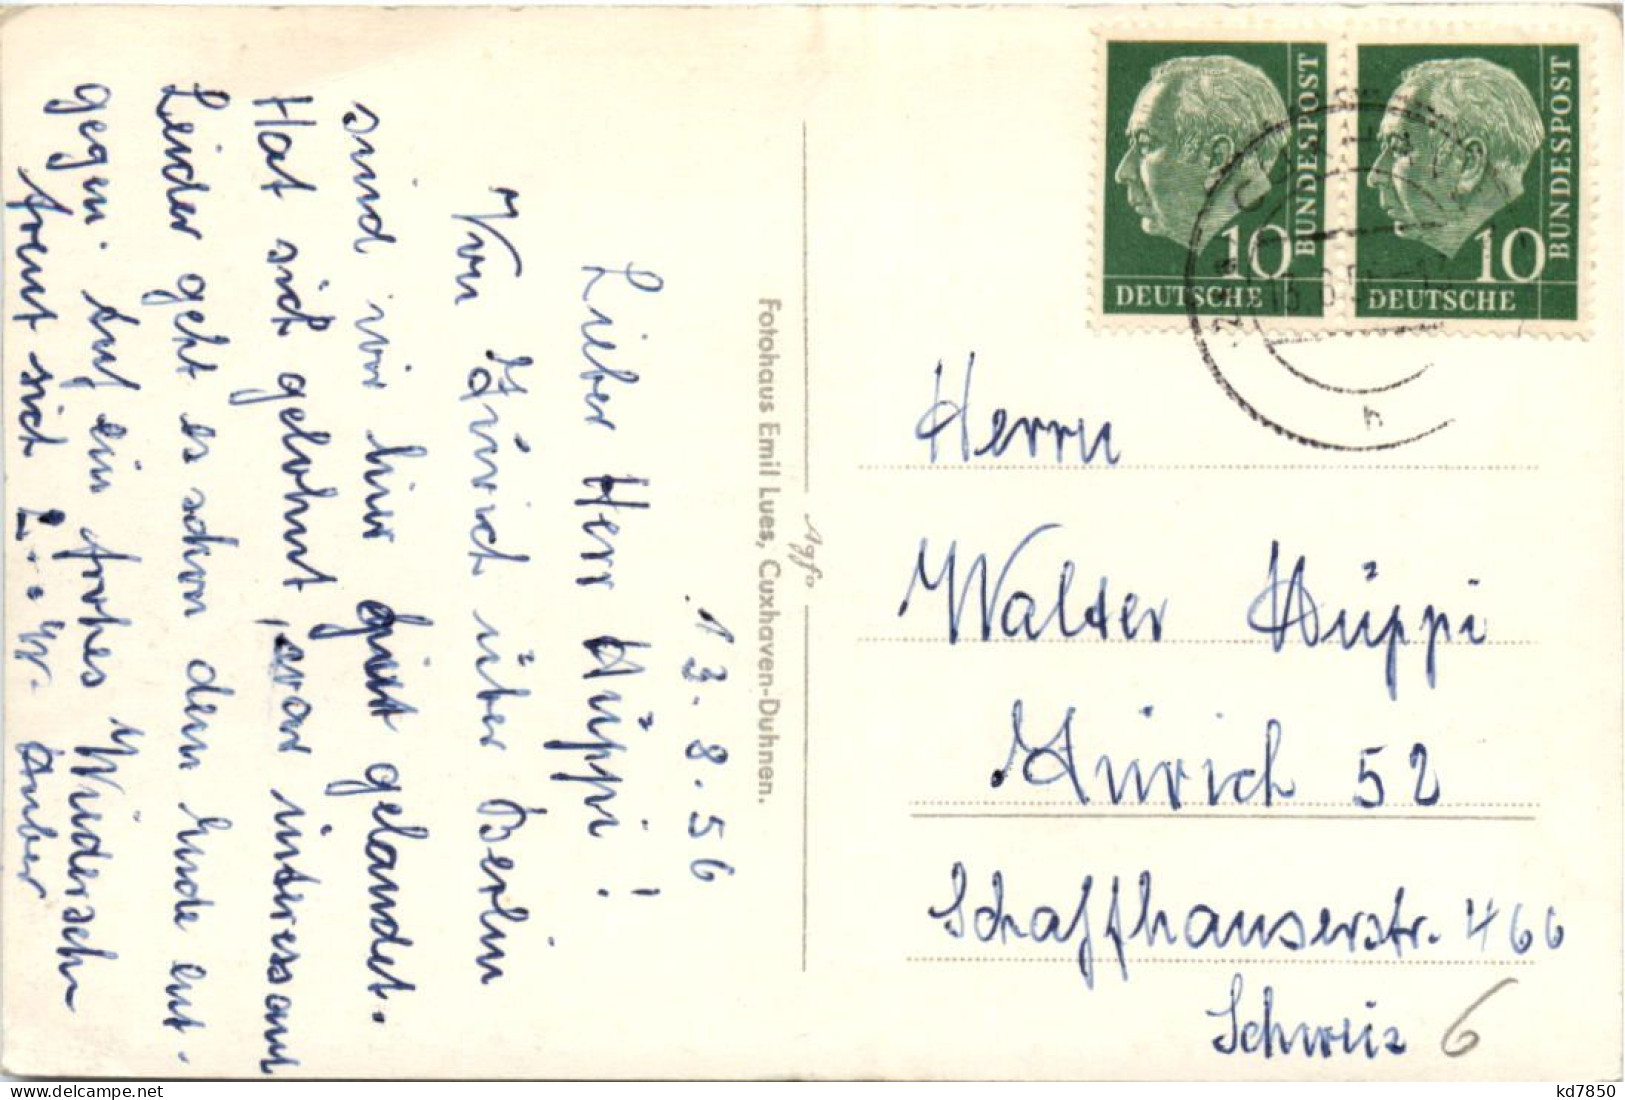 13.8.56
Lieber Herr Hüppi!
Von Zürich über Berlin
sind wir hier gut gelandet.
Hat sich gelohnt, war interessant
Leider geht es schon dem Ende ent-
gegen. Auf ein frohes Wiedersehn
freut sich
Fotohaus Emil Lues, Cuxhaven-Duhnen.
Agfa
DEUTSCHE BUNDESPOST 10
DEUTSCHE BUNDESPOST 10
Herrn
Walter Hüppi
Zürich 52
Schaffhauserstr. 466
Schweiz 6
kd7850